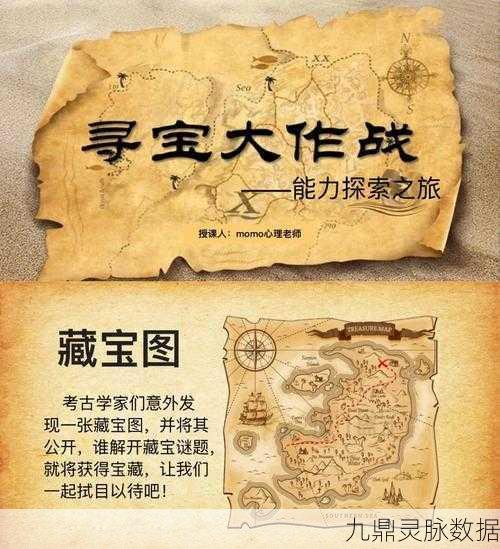 N
XX
Sea
寻宝大作战
——能力探索之旅
X
授课人：momo心理老师
藏宝图
考古学家们意外发
现一张藏宝图，并将其
公开，谁解开藏宝谜题，
就将获得宝藏，让我们
一起拭目以待吧！
TREASURE MAP
SOUTHERN SEA
九鼎灵脉数据